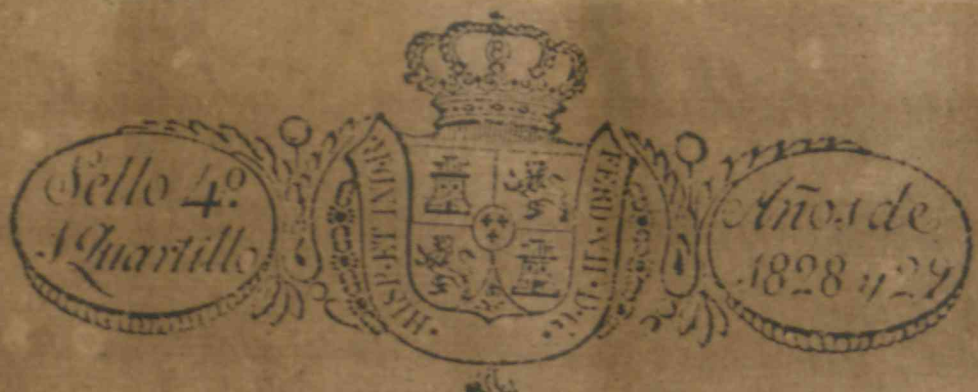 Sello 4º
1 Quartillo
·HISP.ET IND.R·
FERD·VII·D·G·
Años de
1828 y 29